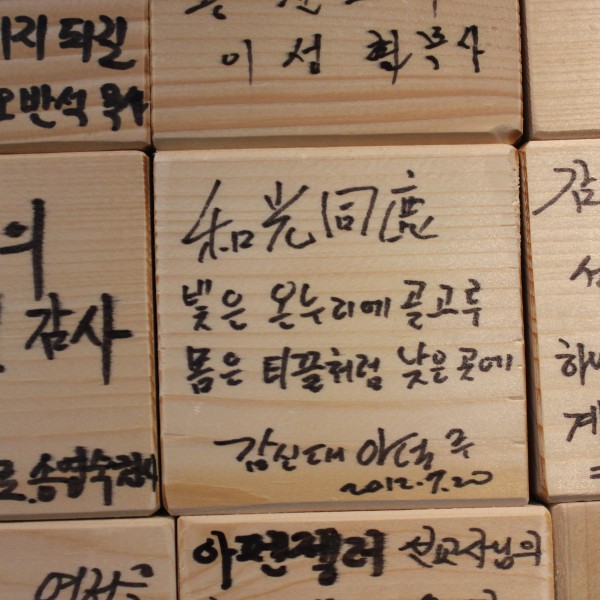 지지 되길
오반석 목사
이 성 혁 목사
의
감사
송영숙 집사
和光同塵
빛은 온누리에 골고루
몸은 티끌처럼 낮은 곳에
감신대 이덕주
2012.7.20
감
하
계
아펜젤러 선교사님의